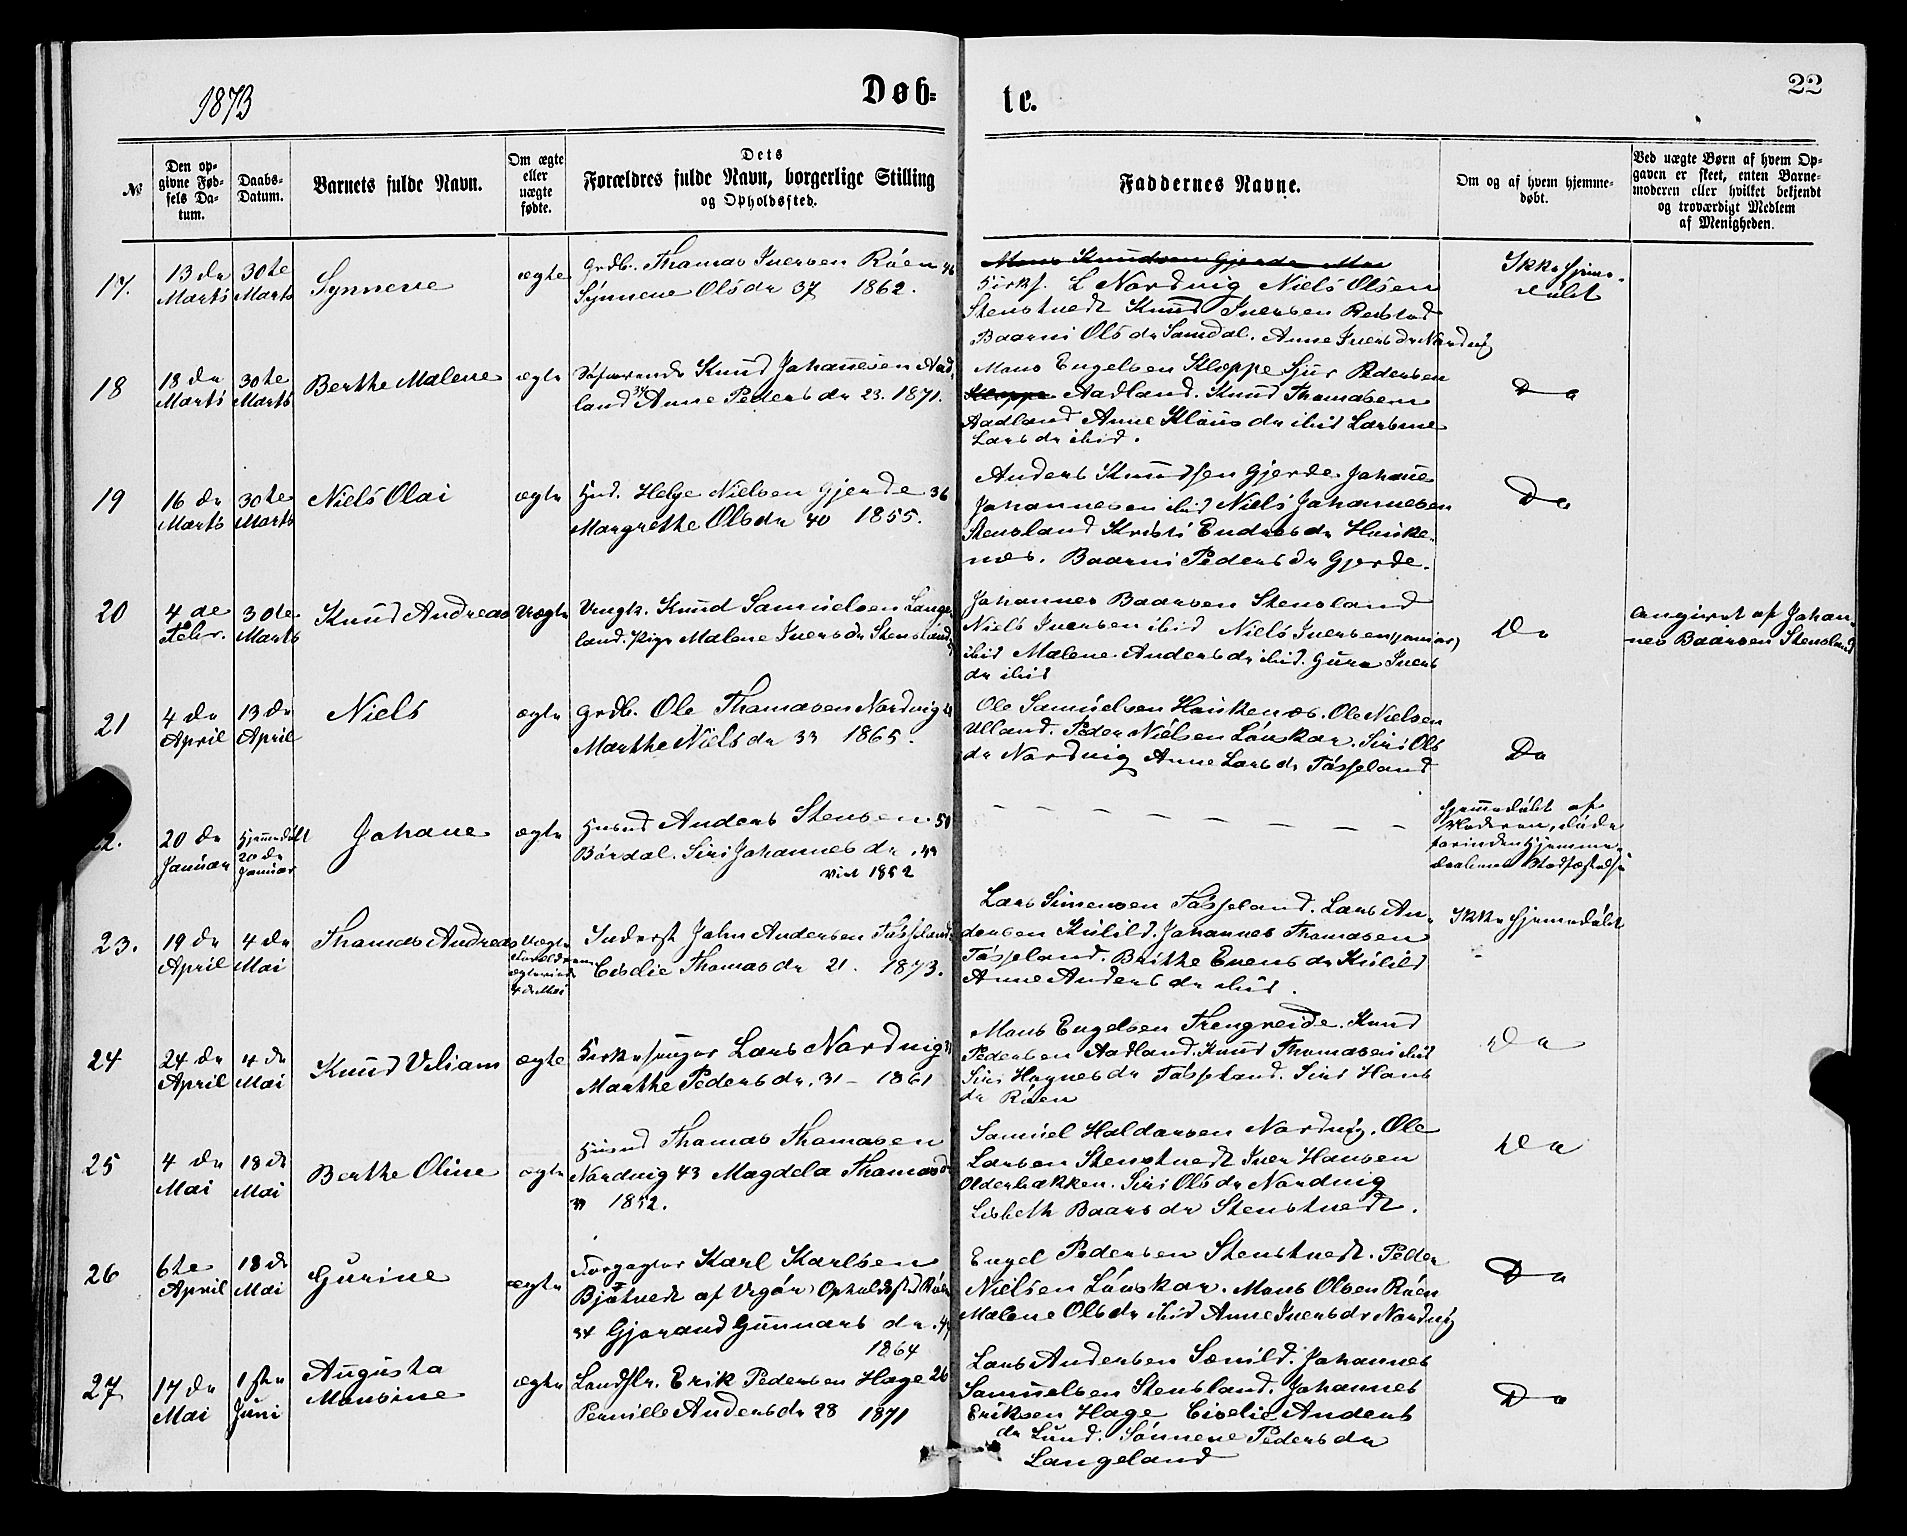 1873
Døb-
te.
22
No
Den op-
givne Fød-
sels Da-
tum.
Daabs-
Datum.
Barnets fulde Navn.
Om ægte
eller
uægte
fødte.
Dets
Forældres fulde Navn, borgerlige Stilling
og Opholdssted.
Faddernes Navne.
Om og af hvem hjemme-
døbt.
Ved uægte Børn af hvem Op-
gaven er skeet, enten Barne-
moderen eller hvilket bekjendt
og troværdigt Medlem
af Menigheden.
17.
13de
Marts
30te
Marts
Synneve
ægte
Grdb. Thomas Iversen Røen 46
Synneve Olsdr 37 1862.
Mons Knudsen Gjerde Mon
Kirks. L Nordvig Niels Olsen
Stenstvedt Knud Iversen Reistad
Baarni Olsdr Samdal. Anne Iversdr Nordvig
Ikke hjem-
døbt
18
18de
Marts
30te
Marts
Berthe Malene
ægte
Knud Johannesen Aad-
land 34 Anne Pedersdr 23. 1871.
Mons Engelsen Kleppe Sjur Pedersen
Kleppe Aadland. Knud Thomasen
Aadland Anne Klausdr ibid
Larsdr ibid.
Do
19
16de
Marts
30te
Marts
Niels Olai
ægte
Husd. Helge Nielsen Gjerde 36
Margrethe Olsdr 40 1855.
Anders Knudsen Gjerde. Johane
Johannesen ibid Niels Johannesen
Stensland Kristi Endresdr Hauke-
næs. Baarni Pedersdr Gjerde.
Do
20
4de
Febr.
30te
Marts
Knud Andreas
Uægte
Ungk. Knud Samuelsen Lange-
land. Pige Malene Iversdr Stensland
Johannes Baarsen Stensland
Niels Iversen ibid Niels Iversen (junior)
ibid Malene Andersdr ibid. Guro Ivers
dr ibid
Do
Angivet af Johan-
nes Baarsen Stensland
21
4de
April
13de
April
Niels
ægte
Grdb. Ole Thomasen Nordvig
Marthe Nielsdr 33 1865.
Ole Samuelsen Haukenæs. Ole Nielsen
Ulland. Peder Nielsen Løuskar. Siri Ols
dr Nordvig Anne Larsdr Tøsseland
Do
20de
Januar
Hjemmedøbt
20de
Januar
Johane
ægte
Husmd Anders Stensen. 50
Børdal. Siri Johannesdr
viet 1852
Hjemmedøbt af
Moderen, døde
forinden Hjemme-
daabens Stadfæstelse
23.
19de
April
4de
Mai
Thomas Andreas
Uægte
Forældrene
4de Mai
Inderst John Andersen Tøsseland
Cisslie Thomasdr 21. 1873.
Lars Simensen Tøsseland. Lars An-
dersen Kulild. Johannes Thomasen
Tøsseland. Brithe Evensdr Kulild
Anne Andersdr ibid.
Ikke hjemmedøbt
24
24de
April
4de
Mai
Knud Viliam
ægte
Kirkesanger Lars Nordvig
Marthe Pedersdr. 31 - 1861
Mons Engelsen Trengreide. Knud
Pedersen Aadland. Knud Thomasen ibid
Siri Hagnesdr Tøsseland. Siri Hans
dr Røen
Do
25
4de
Mai
18de
Mai
Berthe Oline
ægte
Husmd Thomas Thomasen
Nordvig 43 Magdela Thomasdr
39 1852.
Samuel Haldorsen Nordvig. Ole
Larsen Stenstvedt Iver Hansen
Olderbækken. Siri Olsdr Nordvig
Lisbeth Baarsdr Stenstvedt.
Do
26
6te
April
18de
Mai
Gurine
ægte
Forpagter Karl Karlsen
Bjøtvedt af Urgør Opholdssted Røen
34 Gjørand Gunnarsdr. 44
1864
Engel Pedersen Stenstvedt. Peder
Nielsen Løuskar. Mons Olsen Røen
Malene Olsdr ibid Anne Iversdr Nordvig
Do
27
17de
Mai
1ste
Juni
Augusta
Monsine
ægte
Landhr. Erik Pedersen Hage 26
Pernille Andersdr 28 1871
Lars Andersen Sænild. Johannes
Samuelsen Stensland. Johannes
Eriksen Hage Cisslie Anders
dr Lund. Sønneve Pedersdr
Langeland
Do